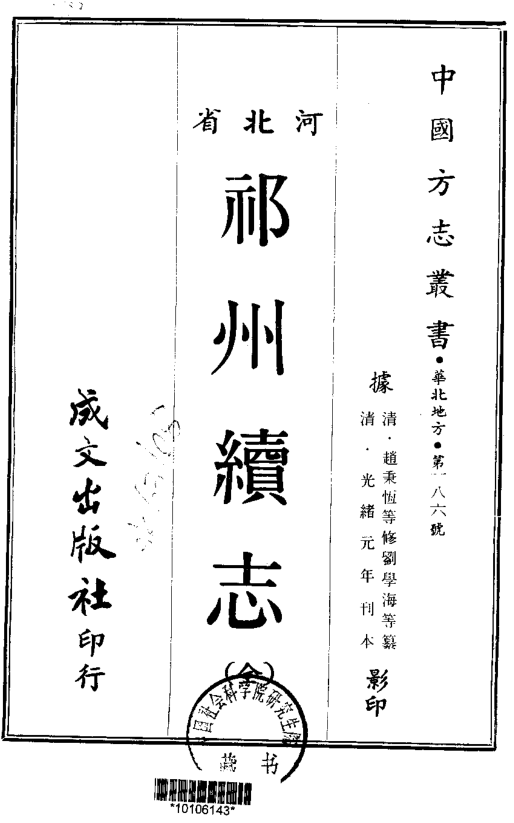 中國方志叢書・華北地方・第一八六號
據
清・趙秉恆等修劉學海等纂
清・光緒元年刊本
影印
河北省
祁州續志
(全)
成文出版社印行
中国社会科学院研究生院
藏书
*10106143*